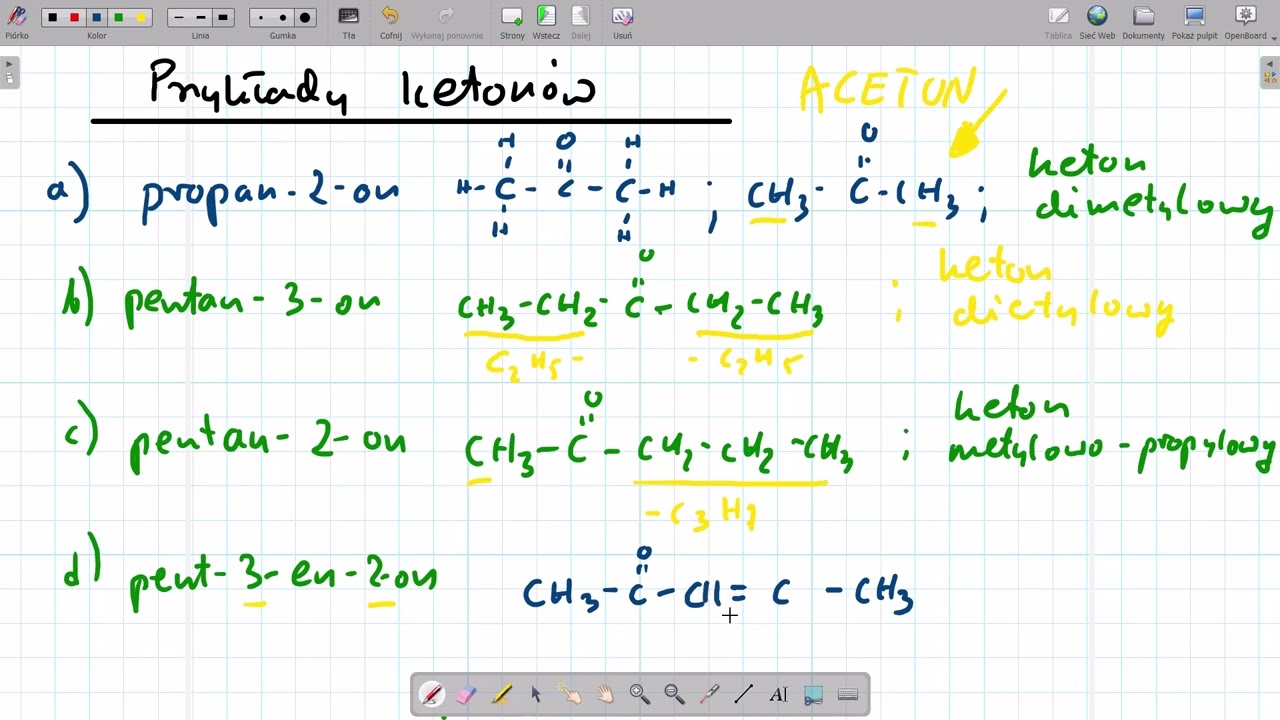 Piórko Kolor Linia Gumka Tła Cofnij Wykonaj ponownie Strony Wstecz Dalej Usuń Tablica Sieć Web Dokumenty Pokaż pulpit OpenBoard
Przykłady ketonów
ACETON
a) propan-2-on
H H O H H-C-C-C-H H H ; CH3-C-CH3 O ; keton dimetylowy
b) pentan-3-on CH3-CH2-C-CH2-CH3 O ; keton dietylowy
C2H5- -C2H5
c) pentan-2-on CH3-C-CH2-CH2-CH3 O ; keton metylowo-propylowy
-C3H7
d) pent-3-en-2-on CH3-C-CH=C -CH3 O
AI